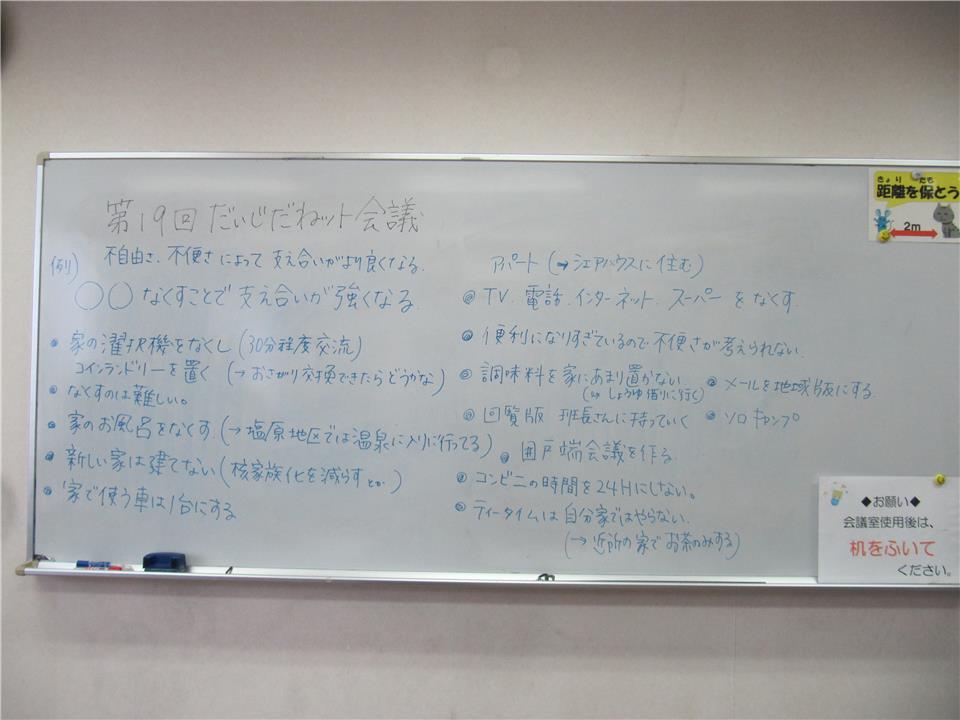 第19回 だいじだねット会議
例) 不自由さ、不便さによって支え合いがより良くなる。
○○なくすことで支え合いが強くなる
• 家の濯択機をなくし (30分程度交流)
コインランドリーを置く (→おさがり交換できたらどうかな)
• なくすのは難しい。
• 家のお風呂をなくす。(→塩原地区では温泉に入りに行ってる)
• 新しい家は建てない (核家族化を減らすとか)
• 家で使う車は1台にする
アパート (→シェアハウスに住む)
• TV、電話、インターネット、スーパーをなくす。
• 便利になりすぎているので不便さが考えられない。
• 調味料を家にあまり置かない
(→しょうゆ借りに行く)
• メールを地域版にする。
• 回覧版 班長さんに持っていく
• ソロキャンプ
• 井戸端会議を作る。
• コンビニの時間を24Hにしない。
• ティータイムは自分家ではやらない。
(→近所の家でお茶のみする)
きょり たも
距離を保とう
2m
◆お願い◆
会議室使用後は、
机をふいて
ください。